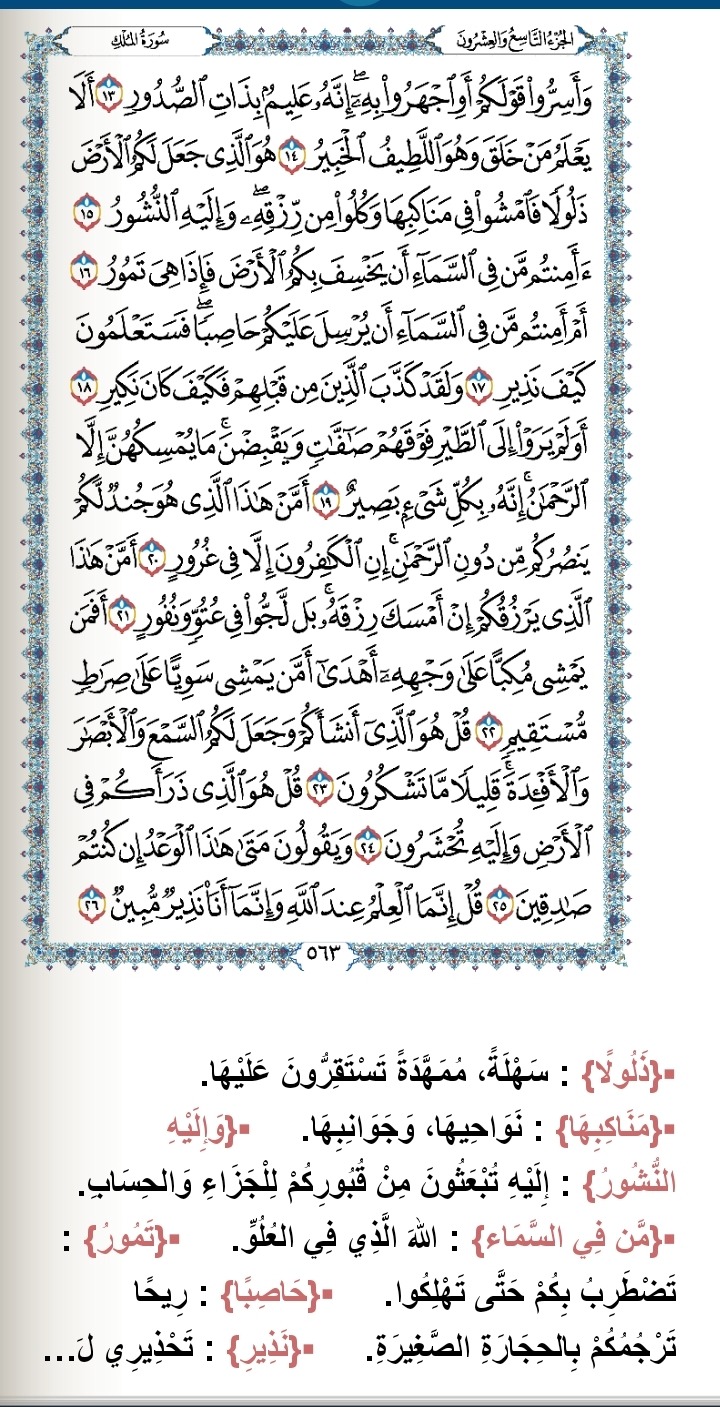 الجُزْءُ التَّاسِعُ وَالعِشْرُونَ
سُورَةُ المُلْكِ
وَأَسِرُّواْ قَوْلَكُمْ أَوِ ٱجْهَرُواْ بِهِۦٓۖ إِنَّهُۥ عَلِيمُۢ بِذَاتِ ٱلصُّدُورِ ١٣ أَلَا
يَعْلَمُ مَنْ خَلَقَ وَهُوَ ٱللَّطِيفُ ٱلْخَبِيرُ ١٤ هُوَ ٱلَّذِى جَعَلَ لَكُمُ ٱلْأَرْضَ
ذَلُولًا فَٱمْشُواْ فِى مَنَاكِبِهَا وَكُلُواْ مِن رِّزْقِهِۦۖ وَإِلَيْهِ ٱلنُّشُورُ ١٥
ءَأَمِنتُم مَّن فِى ٱلسَّمَآءِ أَن يَخْسِفَ بِكُمُ ٱلْأَرْضَ فَإِذَا هِىَ تَمُورُ ١٦
أَمْ أَمِنتُم مَّن فِى ٱلسَّمَآءِ أَن يُرْسِلَ عَلَيْكُمْ حَاصِبًاۖ فَسَتَعْلَمُونَ
كَيْفَ نَذِيرِ ١٧ وَلَقَدْ كَذَّبَ ٱلَّذِينَ مِن قَبْلِهِمْ فَكَيْفَ كَانَ نَكِيرِ ١٨
أَوَلَمْ يَرَوْاْ إِلَى ٱلطَّيْرِ فَوْقَهُمْ صَـٰٓفَّـٰتٍ وَيَقْبِضْنَۚ مَا يُمْسِكُهُنَّ إِلَّا
ٱلرَّحْمَـٰنُۚ إِنَّهُۥ بِكُلِّ شَىْءٍۭ بَصِيرٌ ١٩ أَمَّنْ هَـٰذَا ٱلَّذِى هُوَ جُندٌ لَّكُمْ
يَنصُرُكُم مِّن دُونِ ٱلرَّحْمَـٰنِۚ إِنِ ٱلْكَـٰفِرُونَ إِلَّا فِى غُرُورٍ ٢٠ أَمَّنْ هَـٰذَا
ٱلَّذِى يَرْزُقُكُمْ إِنْ أَمْسَكَ رِزْقَهُۥۚ بَل لَّجُّواْ فِى عُتُوٍّ وَنُفُورٍ ٢١ أَفَمَن
يَمْشِى مُكِبًّا عَلَىٰ وَجْهِهِۦٓ أَهْدَىٰٓ أَمَّن يَمْشِى سَوِيًّا عَلَىٰ صِرَٰطٍ
مُّسْتَقِيمٍ ٢٢ قُلْ هُوَ ٱلَّذِىٓ أَنشَأَكُمْ وَجَعَلَ لَكُمُ ٱلسَّمْعَ وَٱلْأَبْصَـٰرَ
وَٱلْأَفْـِٔدَةَۖ قَلِيلًا مَّا تَشْكُرُونَ ٢٣ قُلْ هُوَ ٱلَّذِى ذَرَأَكُمْ فِى
ٱلْأَرْضِ وَإِلَيْهِ تُحْشَرُونَ ٢٤ وَيَقُولُونَ مَتَىٰ هَـٰذَا ٱلْوَعْدُ إِن كُنتُمْ
صَـٰدِقِينَ ٢٥ قُلْ إِنَّمَا ٱلْعِلْمُ عِندَ ٱللَّهِ وَإِنَّمَآ أَنَا۠ نَذِيرٌ مُّبِينٌ ٢٦
٥٦٣
▪{ذَلُولًا} : سَهْلَةً، مُمَهَّدَةً تَسْتَقِرُّونَ عَلَيْهَا.
▪{مَنَاكِبِهَا} : نَوَاحِيهَا، وَجَوَانِبِهَا. ▪{وَإِلَيْهِ
النُّشُورُ} : إِلَيْهِ تُبْعَثُونَ مِنْ قُبُورِكُمْ لِلْجَزَاءِ وَالحِسَابِ.
▪{مَّن فِي السَّمَاء} : اللهَ الَّذِي فِي العُلُوِّ. ▪{تَمُورُ} :
تَضْطَرِبُ بِكُمْ حَتَّى تَهْلِكُوا. ▪{حَاصِبًا} : رِيحًا
تَرْجُمُكُمْ بِالحِجَارَةِ الصَّغِيرَةِ. ▪{نَذِيرِ} : تَحْذِيرِي لَ...